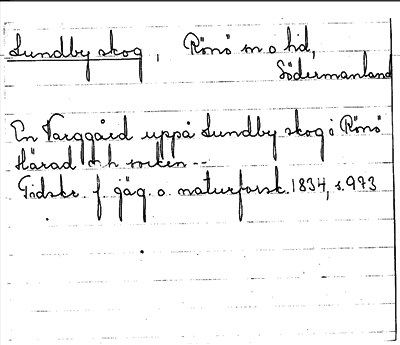 Lundby skog, Rönö sn o hd,
Södermanland
En Varggård uppå Lundby skog i Rönö
Härad och socken --
Tidskr. f. jäg. o. naturforsk. 1834, s. 993